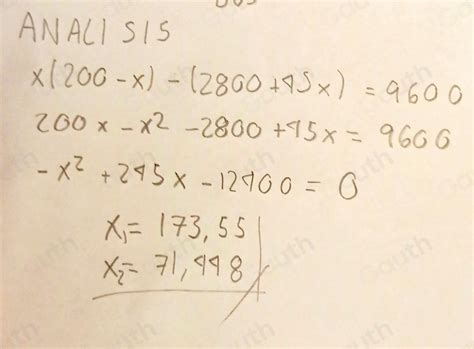 ANALISIS
x(200-x)-(2800+45x)=9600
200x-x²-2800+45x=9600
-x²+245x-12400=0
x₁=173,55
x₂=71,448